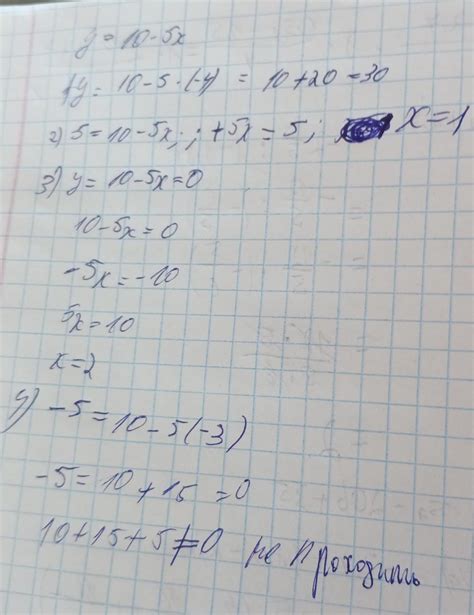 y = 10-5x
1) y = 10-5·(-4) = 10+20=30
2) 5=10-5x; ; +5x=5; x=1
3) y = 10-5x=0
10-5x=0
-5x=-10
5x=10
x=2
4) -5=10-5(-3)
-5=10+15=0
10+15+5≠0 не проходить